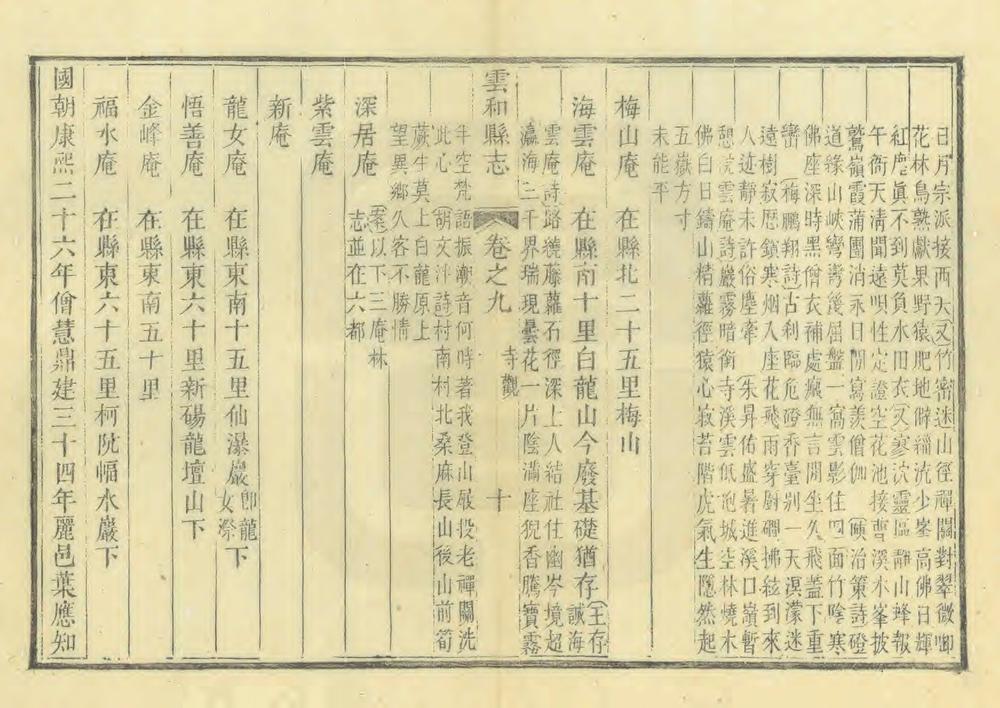 日月宗派接兩天(又)竹密迷山徑禪關對翠微啣
花林鳥熟獻果野猿肥地僻緇流少峯高佛日輝
紅塵眞不到莫負水田衣(又)寥泬靈區靜山蜂報
午衙天清聞遠唄性定證空花池接曹溪水峯披
鷲嶺霞蒲團消永日閒寫羨僧伽 治策詩磴
道緣山峽彎彎幾屈盤一窩雲影住四面竹陰寒
佛座深時黑僧衣補處癜無言閒坐久飛蓋下重
巒(梅鵬翔詩)古刹臨危磴香臺別一天溟濛迷
遠樹寂歷鎖寒烟入座花飛雨穿厨磵拂毶到來
人迹靜未許俗塵牽(朱昇佑盛暑進溪口嶺暫
憩 雲庵詩)巖霧暗衡寺溪雲低 城空林燒木
佛白日鑄山精蘿徑猿心寂苔階虎氣生隱然起
五嶽方寸
未能平
梅山庵 在縣北二十五里梅山
海雲庵 在縣前十里白龍山今廢基礎猶存(王存誠海
雲庵詩)路繞藤蘿石徑深上人結社住幽岑境超
瀛海三千界瑞現曇花一片陰滿座猊香騰寶霧
雲和縣志 卷之九 寺觀 十
半空梵語振潮音何時著我登山屐投老禪關洗
此心(胡文泮詩)村南村北桑麻長山後山前筍
蕨生莫上白龍原上
望異鄉久客不勝情
深居庵 (案以下三庵林
志並在六都
紫雲庵
新庵
龍女庵 在縣東南十五里仙瀑巖卽龍女漈下
悟善庵 在縣東六十里新碭龍壇山下
金峰庵 在縣東南五十里
福水庵 在縣東六十五里柯阮幅水巖下
國朝康熙二十六年僧慧鼎建三十四年麗邑葉應知